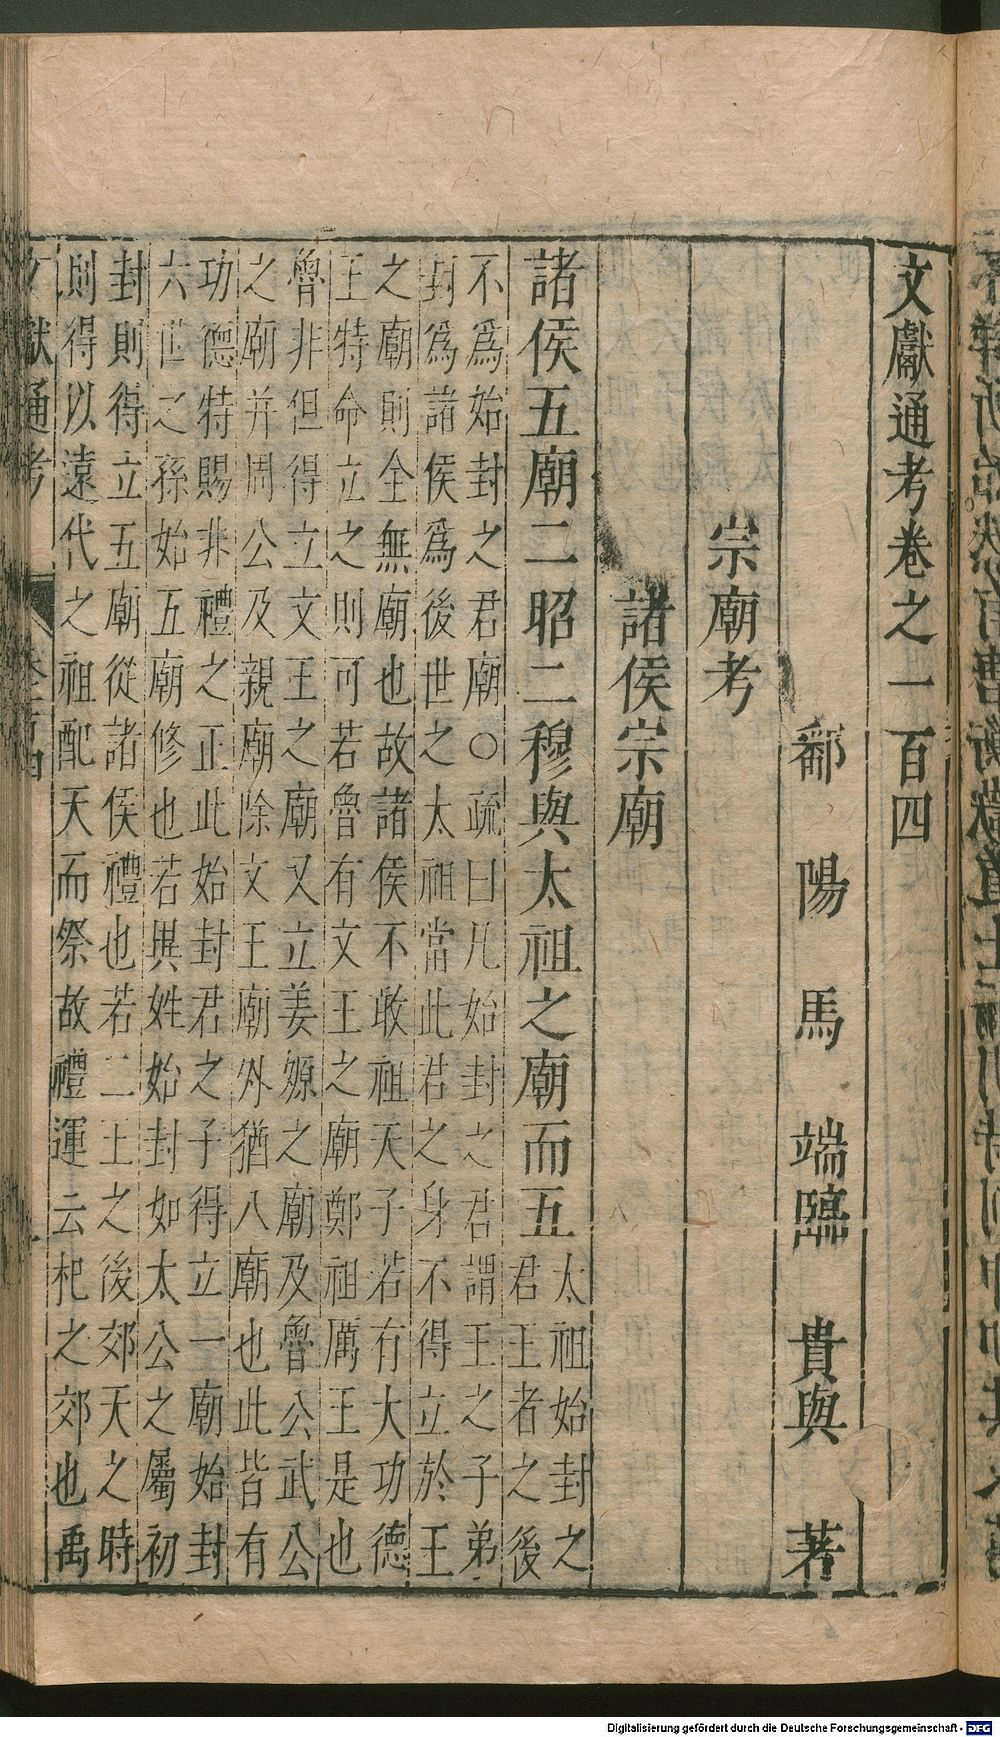 文獻通考卷之一百四
鄱陽馬端臨貴與著
宗廟考
諸侯宗廟
諸侯五廟二昭二穆與太祖之廟而五太祖始封之
君王者之後
不爲始封之君廟○疏曰凡始封之君謂王之子弟
封爲諸侯爲後世之太祖當此君之身不得立於王
之廟則全無廟也故諸侯不敢祖天子若有大功德
王特命立之則可若魯有文王之廟鄭祖厲王是也
魯非但得立文王之廟又立姜嫄之廟及魯公武公
之廟并周公及親廟除文王廟外猶八廟也此皆有
功德特賜非禮之正此始封君之子得立一廟始封
六世之孫始五廟修也若異姓始封如太公之屬初
封則得立五廟從諸侯禮也若二王之後郊天之時
則得以遠代之祖配天而祭故禮運云杞之郊也禹
文獻通考
Digitalisierung gefördert durch die Deutsche Forschungsgemeinschaft - DFG